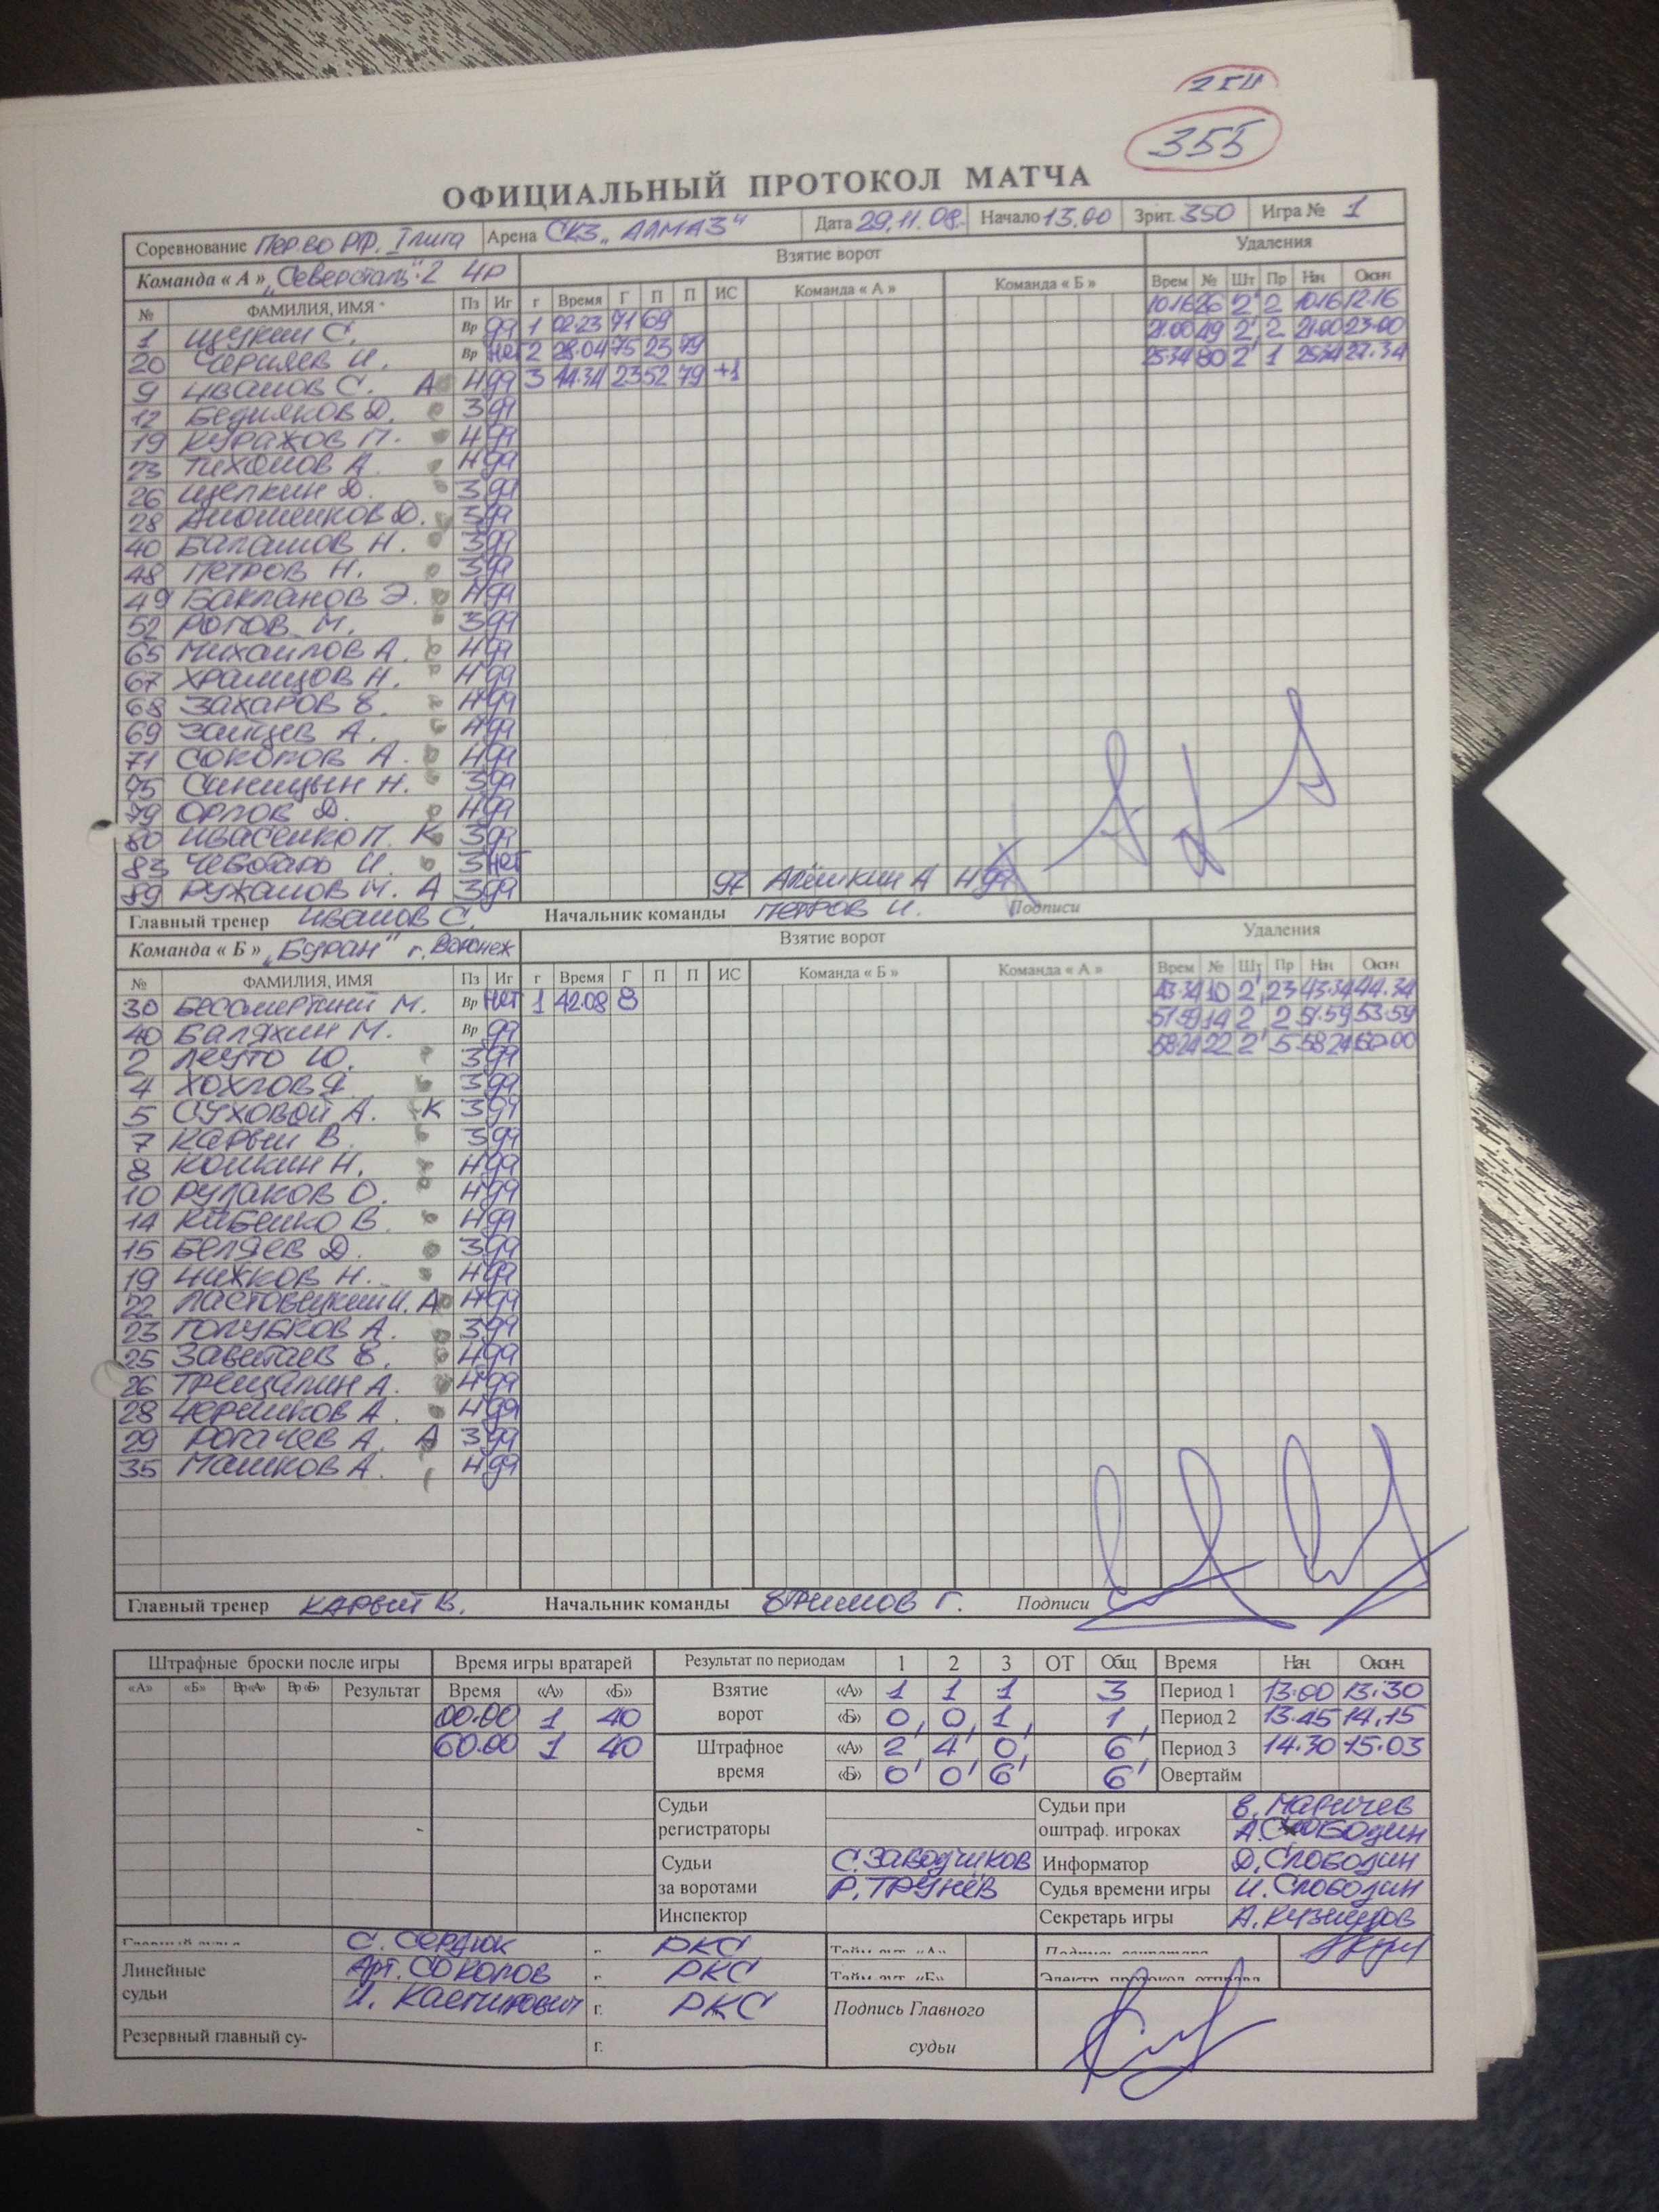 355
ОФИЦИАЛЬНЫЙ ПРОТОКОЛ МАТЧА
Соревнование Пер-во РФ. I лига Арена СКЗ "АЛМАЗ" Дата 29.11.08. Начало 13.00 Зрит. 350 Игра № 1
Команда « А » "Северсталь"-2 ЧР Взятие ворот Удаления
№ ФАМИЛИЯ, ИМЯ Пз Иг г Время Г П П ИС Команда « А » Команда « Б » Врем № Шт Пр Нач Оконч
1 Щукин С. Вр да 1 02.23 71 69 10.16 26 2' 2 10.16 12.16
20 Черняев И. Вр нет 2 28.04 75 23 79 21.00 49 2' 2 21.00 23.00
9 Иванов С. А Н да 3 44.34 23 52 79 +1 25.34 80 2' 1 25.34 27.34
12 Бедняков Д. З да
19 Курахов П. Н да
23 Тихонов А. Н да
26 Щелкин Д. З да
28 Аношенков Д. З да
40 Балашов Н. З да
48 Петров Н. З да
49 Бакланов Э. Н да
52 Рогов М. З да
65 Михайлов А. Н да
67 Храмцов Н. Н да
68 Захаров Е. Н да
69 Зайцев А. Н да
71 Соколов А. Н да
75 Синицын Н. З да
79 Орлов Д. Н да
80 Ивасенко П. К З да
83 Чеботарь И. З нет
89 Ружанов М. А З да 97 Алёшкин А Н да
Главный тренер Иванов С. Начальник команды Петров И. Подписи
Команда « Б » "Буран" г. Воронеж Взятие ворот Удаления
№ ФАМИЛИЯ, ИМЯ Пз Иг г Время Г П П ИС Команда « Б » Команда « А » Врем № Шт Пр Нач Оконч
30 Бессмертный М. Вр нет 1 42.08 8 43.34 10 2' 23 43.34 44.34
40 Баляхин М. Вр да 51.59 14 2' 2 51.59 53.59
2 Леуто Ю. З да 58.24 22 2' 5 58.24 60.00
4 Хохлов Я. З да
5 Суховой А. К З да
7 Карый В. З да
8 Кошкин Н. Н да
10 Рулаков О. Н да
14 Кибенко В. Н да
15 Беляев Д. З да
19 Чижков Н. Н да
22 Ластовецкий И. А Н да
23 Голубков А. З да
25 Заветаев Е. Н да
26 Трещалин А. Н да
28 Черенков А. Н да
29 Рогачев А. А З да
35 Машков А. Н да
Главный тренер Карый В. Начальник команды Ефимов Г. Подписи
Штрафные броски после игры Время игры вратарей Результат по периодам 1 2 3 ОТ Общ Время Нач. Оконч.
«А» «Б» Вр«А» Вр«Б» Результат Время «А» «Б» Взятие ворот «А» 1 1 1 3 Период 1 13.00 13.30
00.00 1 40 «Б» 0 0 1 1 Период 2 13.45 14.15
60.00 1 40 Штрафное время «А» 2' 4' 0' 6' Период 3 14.30 15.03
«Б» 0' 0' 6' 6' Овертайм
Судьи регистраторы Судьи при оштраф. игроках В. Маричев
А. Слободин
Судьи за воротами С. Заводчиков Информатор Д. Слободин
Р. Трунёв Судья времени игры И. Слободин
Инспектор Секретарь игры А. Кузнецов
Главный судья С. Сердюк г. РКС Тайм-аут «А» Подпись секретаря
Линейные судьи Арт. Соколов г. РКС Тайм-аут «Б» Электр. протокол отправл.
И. Каспирович г. РКС Подпись Главного судьи
Резервный главный су- г.